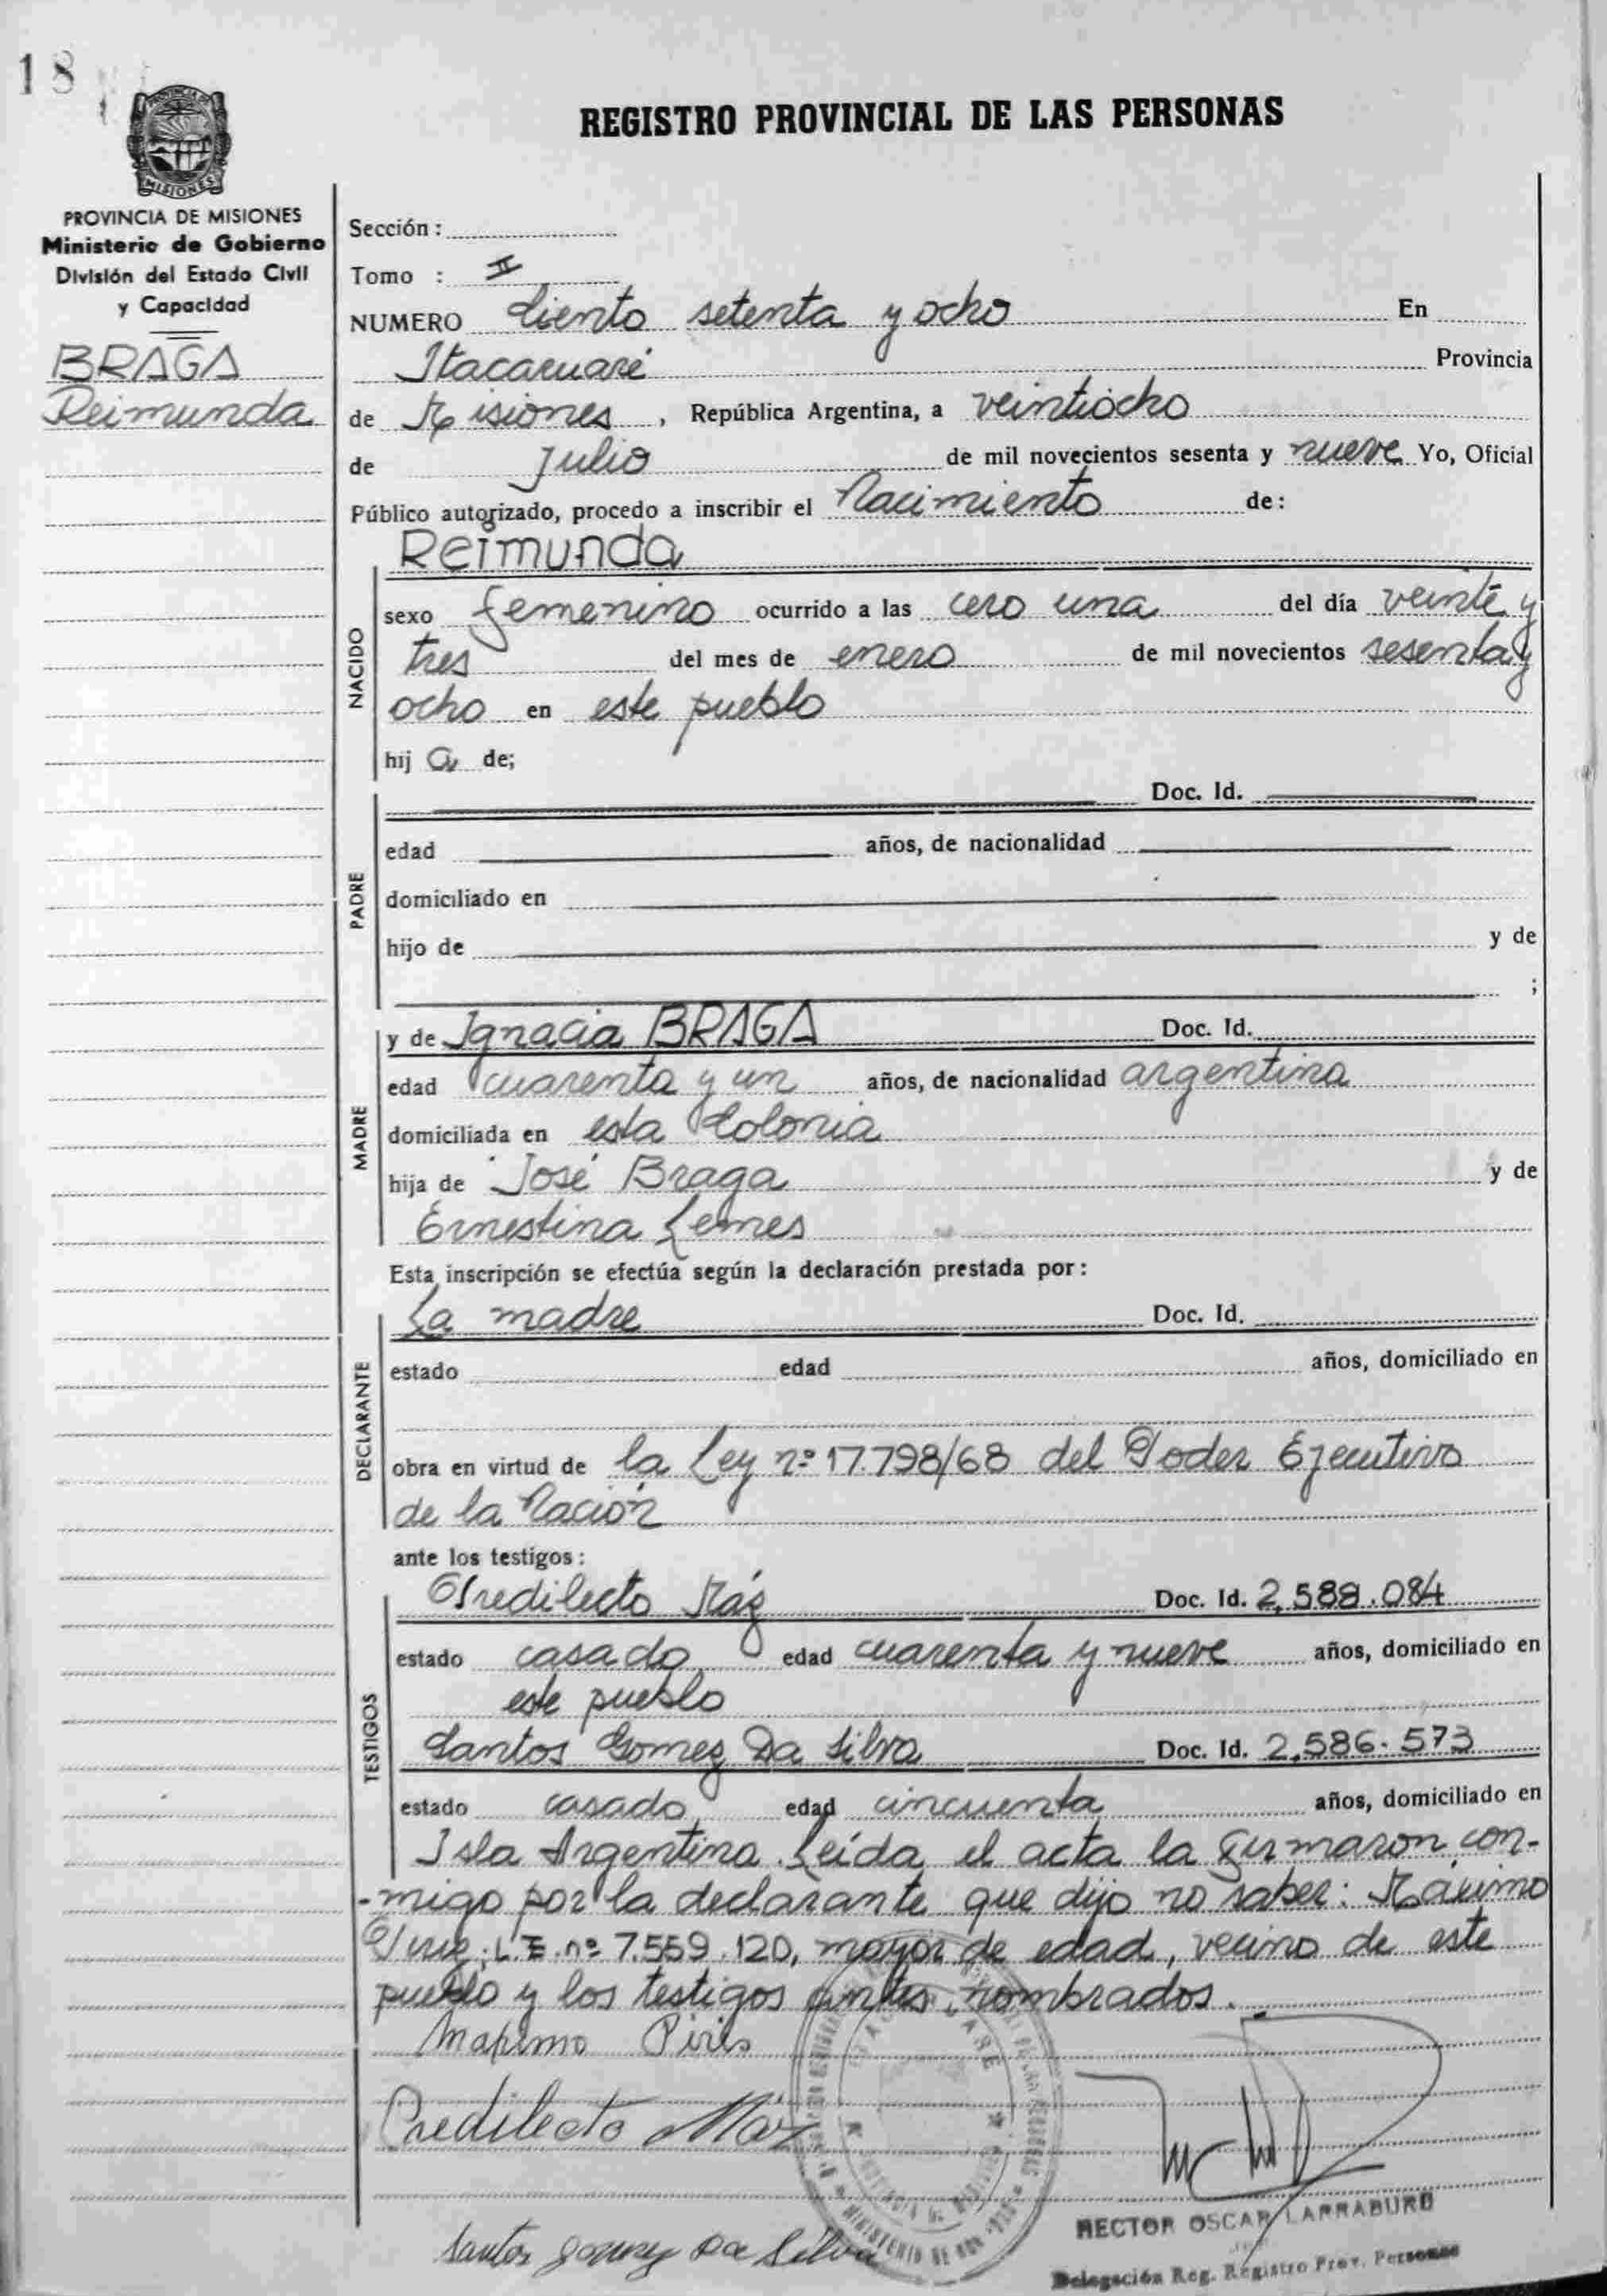 18
REGISTRO PROVINCIAL DE LAS PERSONAS
MISIONES
PROVINCIA DE MISIONES
Ministerio de Gobierno
División del Estado Civil
y Capacidad
BRAGA
Reimunda
Sección :
Tomo : II
NUMERO Ciento setenta y ocho En
Itacaruaré Provincia
de Misiones , República Argentina, a veintiocho
de Julio de mil novecientos sesenta y nueve Yo, Oficial
Público autorizado, procedo a inscribir el Nacimiento de:
Reimunda
NACIDO
sexo femenino ocurrido a las cero una del día veinte y
tres del mes de enero de mil novecientos sesenta y
ocho en este pueblo
hij a de;
PADRE
Doc. Id.
edad años, de nacionalidad
domiciliado en
hijo de y de
;
MADRE
y de Ignacia BRAGA Doc. Id.
edad cuarenta y un años, de nacionalidad argentina
domiciliada en esta Colonia
hija de José Braga y de
Ernestina Lemes
Esta inscripción se efectúa según la declaración prestada por:
DECLARANTE
La madre Doc. Id.
estado edad años, domiciliado en
obra en virtud de la Ley nº 17.798/68 del Poder Ejecutivo
de la Nación
ante los testigos:
TESTIGOS
Predilecto Máz Doc. Id. 2,588.084
estado casado edad cuarenta y nueve años, domiciliado en
este pueblo
Santos Gomez Da Silva Doc. Id. 2,586.573
estado casado edad cincuenta años, domiciliado en
Isla Argentina. Leída el acta la firmaron con-
-migo por la declarante que dijo no saber: Máximo
L.E. nº 7.559.120, mayor de edad, vecino de este
pueblo y los testigos antes nombrados.
Maximo Piris
Predilecto Máz
Santos Gomez Da Silva
HECTOR OSCAR LARRABURU
Delegación Reg. Registro Prov. Personas